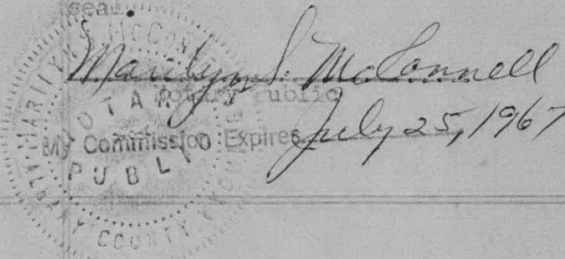 seal.
Marilyn S. McConnell
Notary Public
My Commission Expires July 25, 1967
MARILYN S. McCONNELL
NOTARY
PUBLIC
ALBANY COUNTY